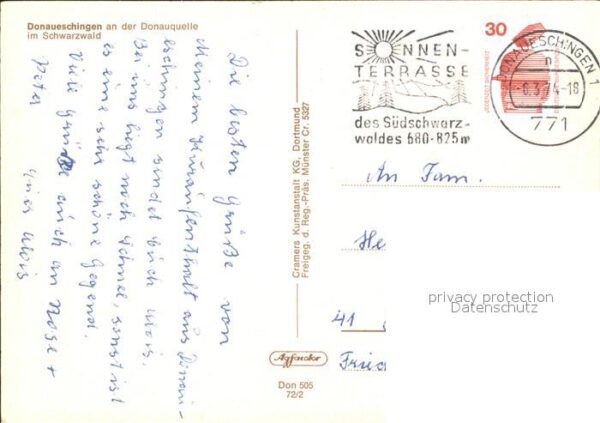 Donaueschingen an der Donauquelle
im Schwarzwald
Die besten Grüße von
meinem Kuraufenthalt aus Donau-
eschingen sendet Euch Alois.
Bei uns liegt noch Schnee, sonst ist
es eine sehr schöne Gegend.
Viele Grüße auch an Rose +
Peter
Euer Alois
Cramers Kunstanstalt KG, Dortmund
Freigeg. d. Reg.-Präs. Münster Cr. 5327
Agfacolor
Don 505
72/2
SONNEN-
TERRASSE
des Südschwarz-
waldes 680-825m
30
DONAUESCHINGEN 1
n
-6.3.74-18
771
An Fam.
He
41
Fried
privacy protection
Datenschutz